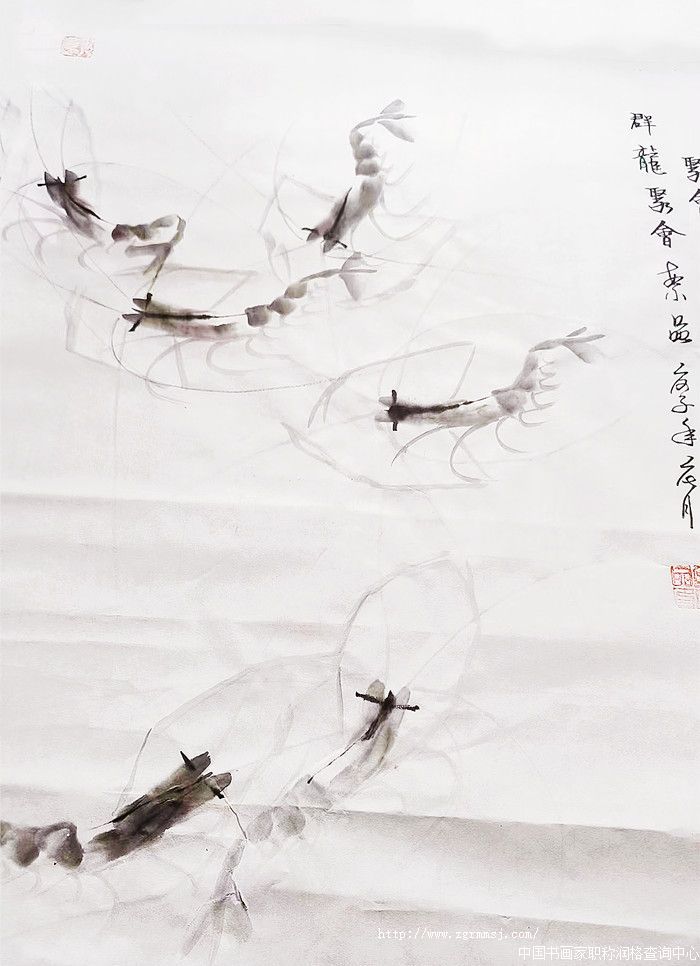 群龍聚會 品 庚子年 月
http://www.zgrmmsj.com/
中国书画家职称润格查询中心